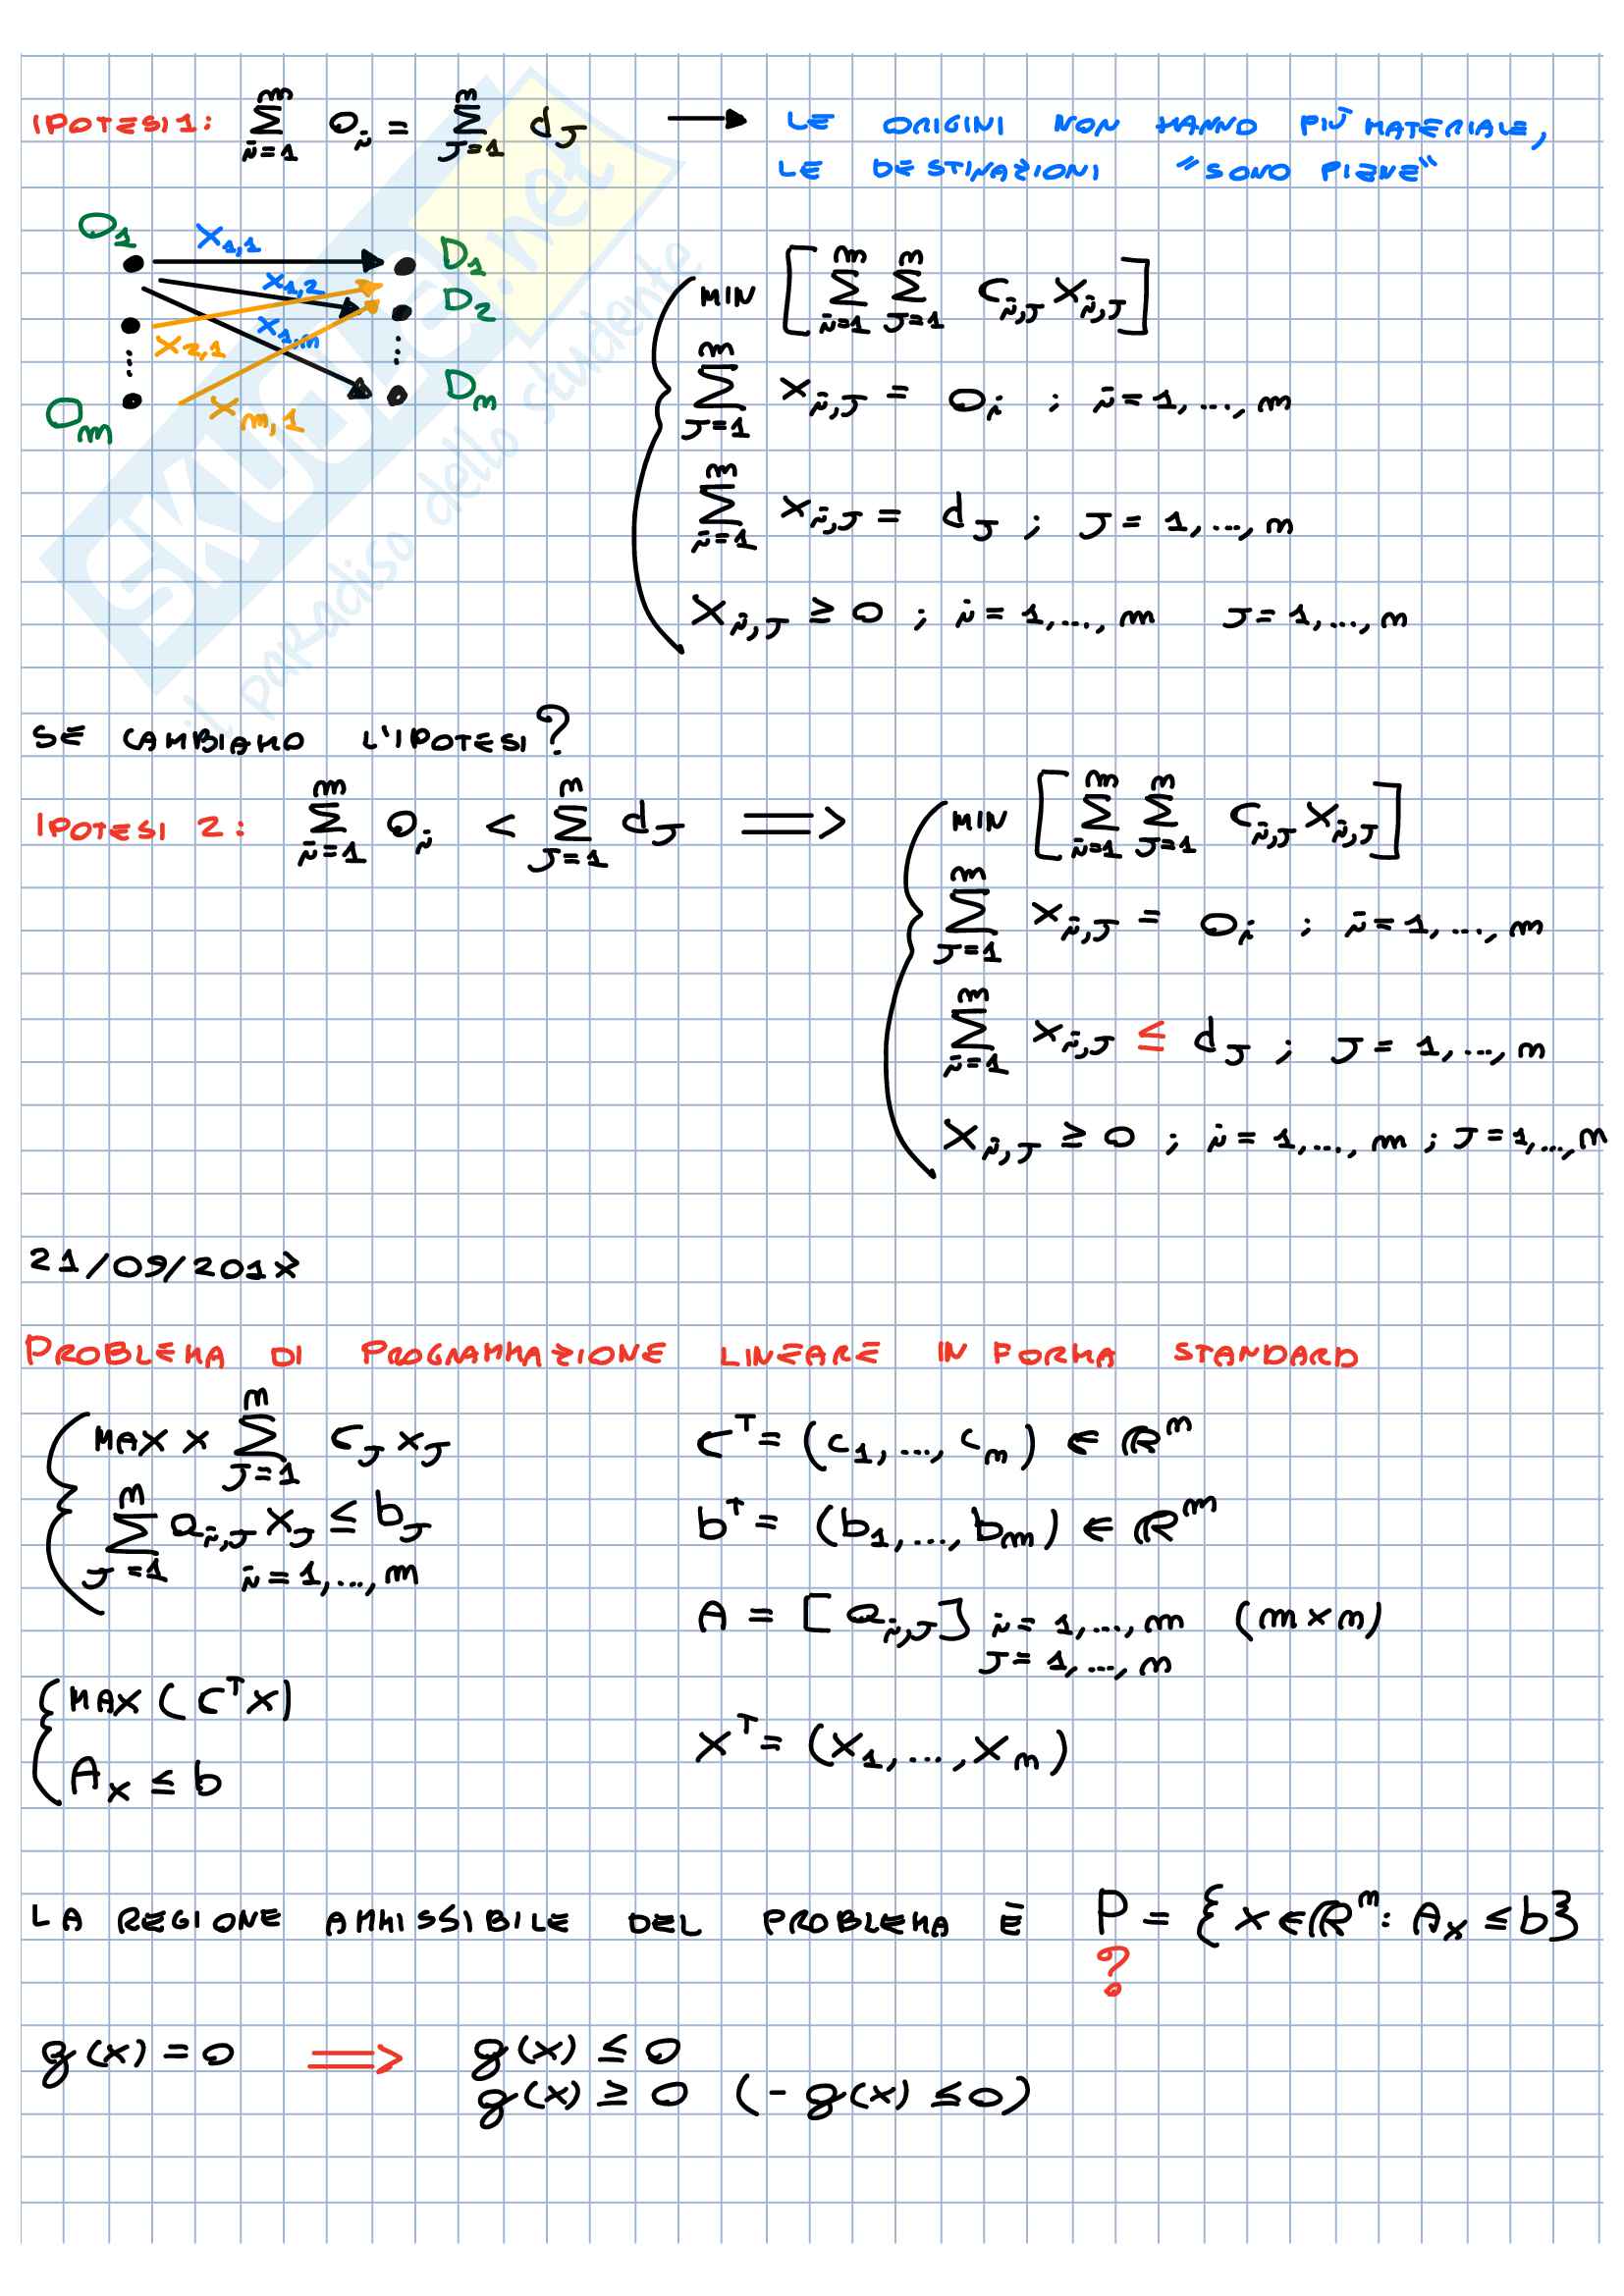 IPOTESI 1: ∑_{i=1}^{m} O_i = ∑_{J=1}^{n} d_J → LE ORIGINI NON HANNO PIÙ MATERIALE,
LE DESTINAZIONI "SONO PIENE"
O_1 x_{1,1} D_1
x_{1,2} D_2
x_{2,1} x_{1,n}
⋮ ⋮
O_m x_{m,1} D_n
MIN [∑_{i=1}^{m} ∑_{J=1}^{n} C_{i,J} X_{i,J}]
∑_{J=1}^{n} x_{i,J} = O_i ; i = 1, ..., m
∑_{i=1}^{m} x_{i,J} = d_J ; J = 1, ..., n
X_{i,J} ≥ 0 ; i = 1, ..., m J = 1, ..., n
SKUOLA.net
il paradiso dello studente
SE CAMBIAMO L'IPOTESI?
IPOTESI 2: ∑_{i=1}^{m} O_i < ∑_{J=1}^{n} d_J ⟹ MIN [∑_{i=1}^{m} ∑_{J=1}^{n} C_{i,J} X_{i,J}]
∑_{J=1}^{n} x_{i,J} = O_i ; i = 1, ..., m
∑_{i=1}^{m} x_{i,J} ≤ d_J ; J = 1, ..., n
X_{i,J} ≥ 0 ; i = 1, ..., m ; J = 1, ..., n
21/09/2017
PROBLEMA DI PROGRAMMAZIONE LINEARE IN FORMA STANDARD
MAX x ∑_{J=1}^{n} C_J x_J
∑_{J=1}^{n} a_{i,J} x_J ≤ b_J
i = 1, ..., m
C^T = (c_1, ..., c_n) ∈ ℝ^n
b^T = (b_1, ..., b_m) ∈ ℝ^m
A = [a_{i,J}] i = 1, ..., m (m x n)
J = 1, ..., n
MAX (C^T X)
Ax ≤ b
X^T = (X_1, ..., X_n)
LA REGIONE AMMISSIBILE DEL PROBLEMA È P = {x ∈ ℝ^n : Ax ≤ b}
?
g(x) = 0 ⟹ g(x) ≤ 0
g(x) ≥ 0 (-g(x) ≤ 0)